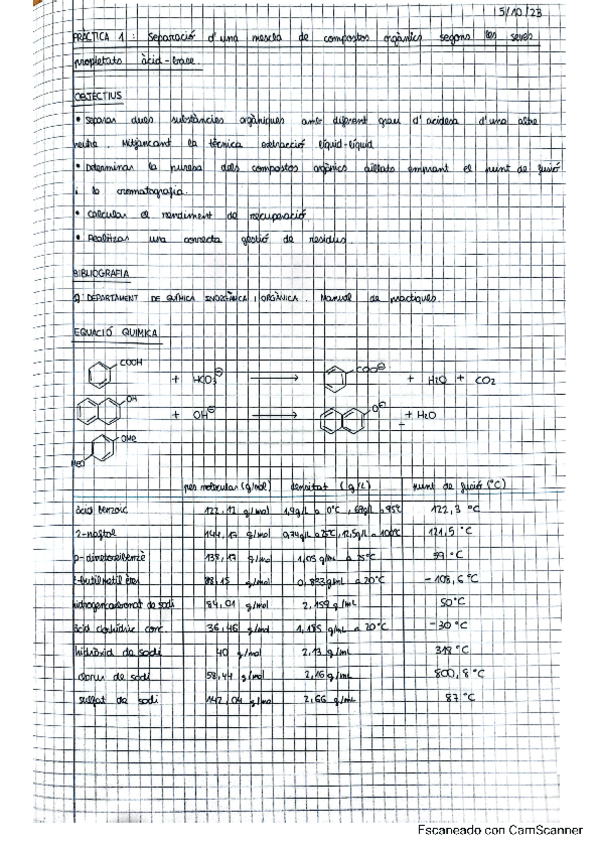 5/10/23
PRÀCTICA 1: Separació d'una mescla de compostos orgànics segons les seves
propietats àcid-base.
OBJECTIUS
• Separar dues substàncies orgàniques amb diferent grau d'acidesa d'una altre
neutre. Mitjançant la tècnica extracció líquid-líquid
• Determinar la puresa dels compostos orgànics aïllats emprant el punt de fusió
i la cromatografia.
• Calcular el rendiment de recuperació.
• Realitzar una correcta gestió de residus.
BIBLIOGRAFIA
DEPARTAMENT DE QUÍMICA INORGÀNICA I ORGÀNICA. Manual de pràctiques.
EQUACIÓ QUIMICA
COOH + HCO3⊖ → COO⊖ + H2O + CO2
OH + OH⊖ → O⊖ + H2O
OMe
MeO
pes molecular (g/mol) densitat (g/L) punt de fusió (°C)
àcid benzoic 122,12 g/mol 0°C, 95°C 122,3 °C
2-naftol 144,17 g/mol 0,74g/L a 25°C, 12,5g/L a 100°C 121,5 °C
p-dimetoxibenzè 138,17 g/mol 1,05 g/mL a 25°C
t-butil metil èter 88,15 g/mol a 20°C -108,6 °C
hidrogencarbonat de sodi 84,01 g/mol 2,159 g/mL 50 °C
àcid clorhídric conc. 36,46 g/mol 1,185 g/mL a 20°C -30 °C
hidròxid de sodi 40 g/mol 2,13 g/mL 318 °C
clorur de sodi 58,44 g/mol 2,16 g/mL 800,8 °C
sulfat de sodi 142,04 g/mol 2,66 g/mL 87 °C
Escaneado con CamScanner